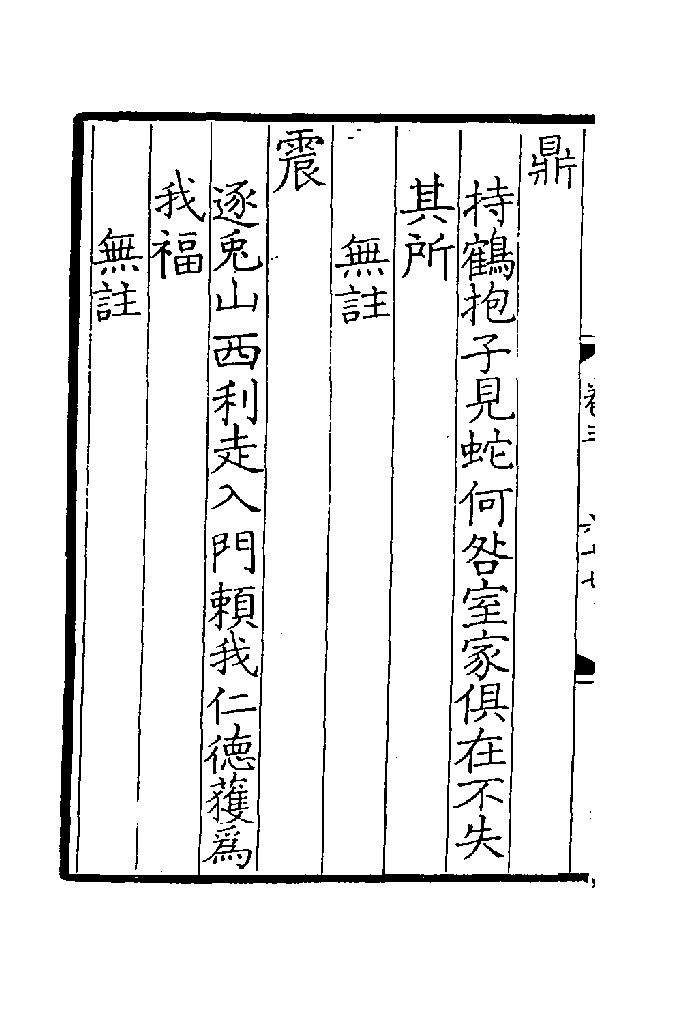 鼎
持鶴抱子見蛇何咎室家俱在不失
其所
無註
震
逐兎山西利走入門賴我仁德獲爲
我福
無註